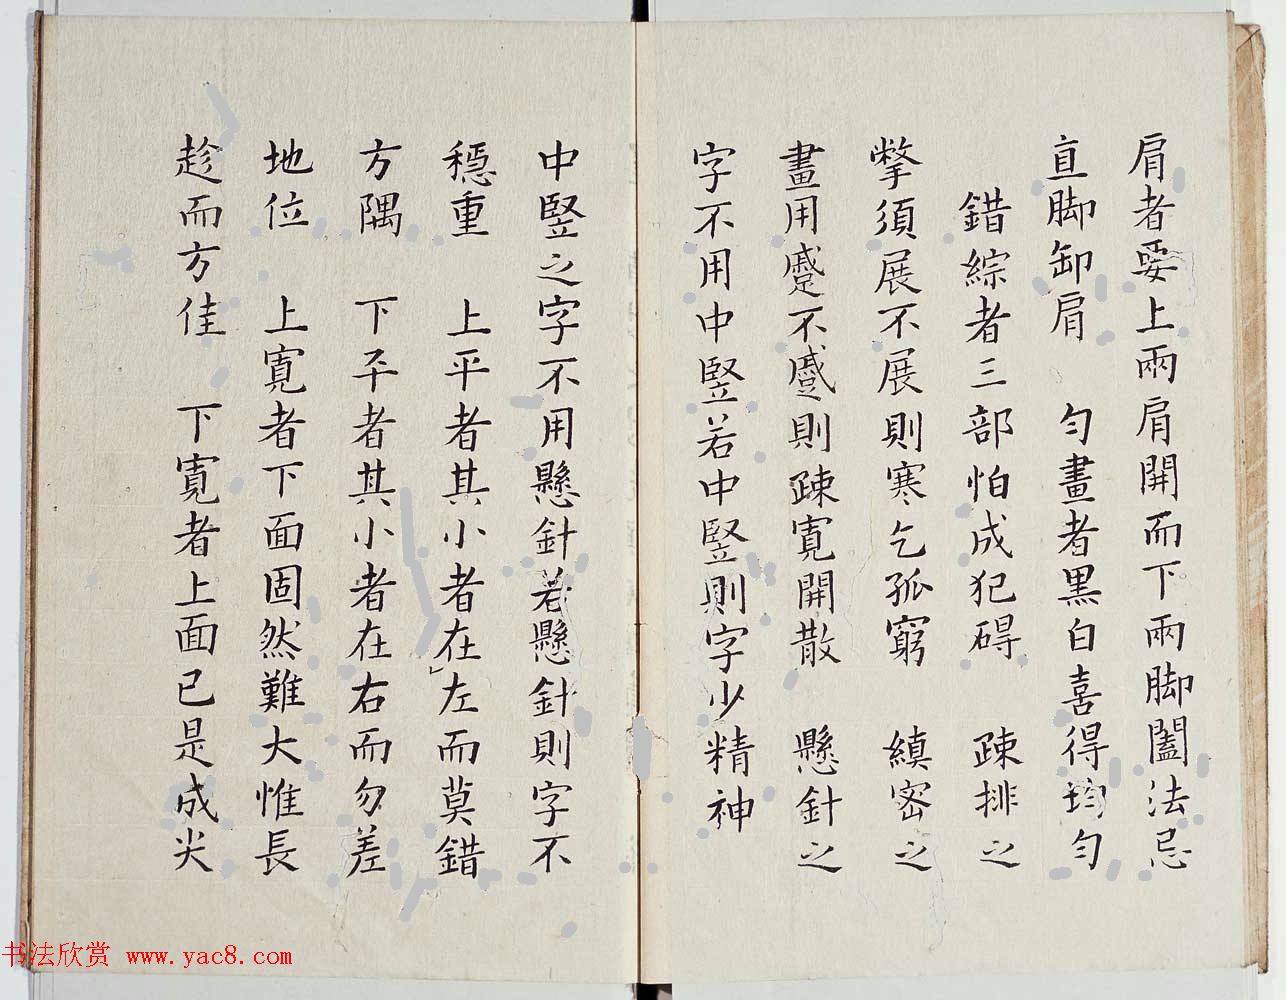 肩者要上兩肩開而下兩脚闔法忌
直脚卸肩 勻畫者黑白喜得均勻
錯綜者三部怕成犯碍 疎排之
撆須展不展則寒乞孤窮 縝密之
畫用蹙不蹙則疎寬開散 懸針之
字不用中竪若中竪則字少精神
中竪之字不用懸針若懸針則字不
穩重 上平者其小者在左而莫錯
方隅 下平者其小者在右而勿差
地位 上寬者下面固然難大惟長
趁而方佳 下寬者上面已是成尖
书法欣赏 www.yac8.com